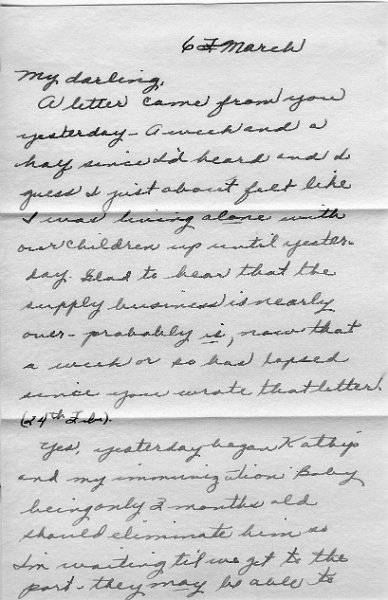 6 March
My darling,
A letter came from you
yesterday - A week and a
half since I'd heard and I
guess I just about felt like
I was living alone with
our children up until yester-
day. Glad to hear that the
supply business is nearly
over - probably is, now that
a week or so has lapsed
since you wrote that letter.
(24th Feb).
Yes, yesterday began Kathy's
and my immunization Baby
being only 2 months old
should eliminate him so
I'm waiting til we get to the
port - they may be able to